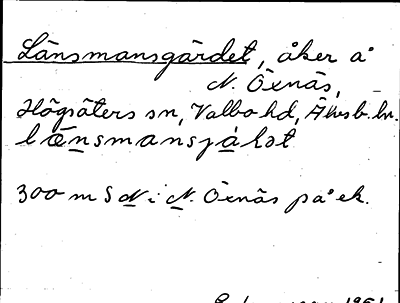 Länsmansgärdet, åker å
N. Öxnäs,
Högsäters sn, Valbo hd, Älvsb. ln.
lænsmansjálət
300 m S N i N. Öxnäs på ek.